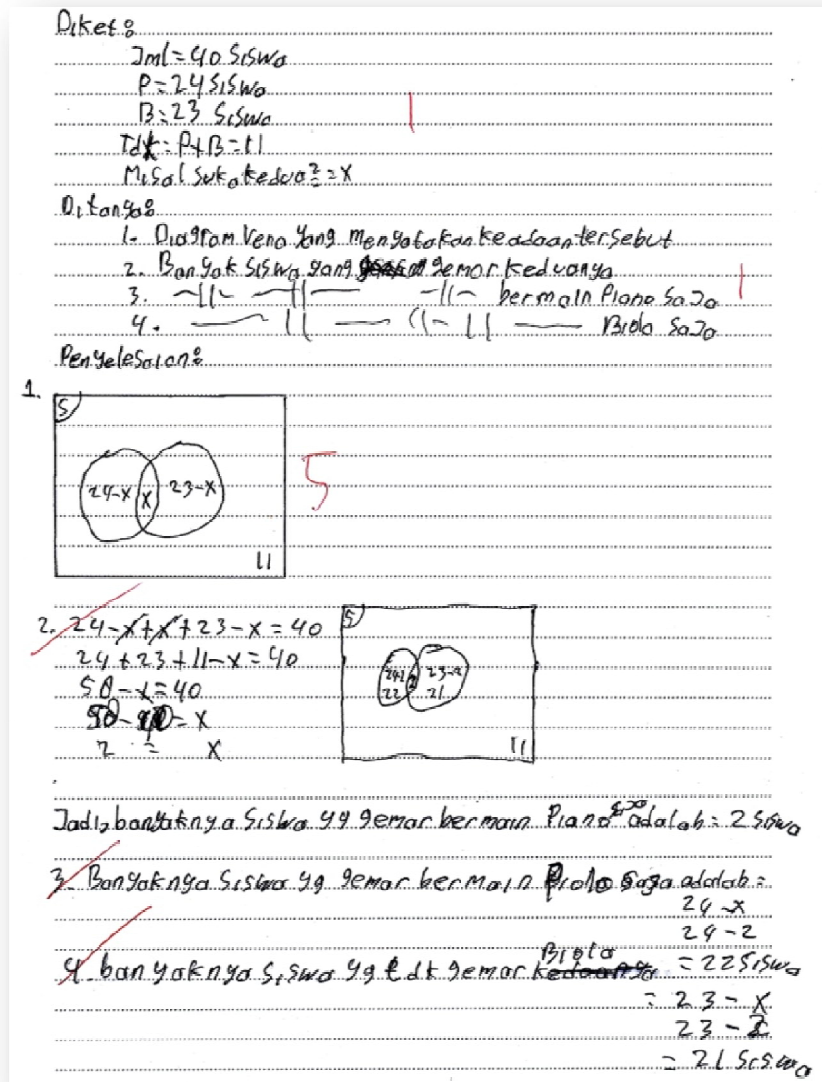 Diket :
Jml = 40 siswa
P = 24 siswa
B = 23 siswa
Tdk = P+B = 11
Misal suka kedua² = x
1
Ditanya :
1. Diagram Venn yang menyatakan keadaan tersebut
2. Banyak siswa yang gemar keduanya
3. -||- -||- -||- bermain Piano saja
1
4. -||- -||- -||- Biola saja
Penyelesaian :
1.
S
24-x x 23-x
5
11
2. 24-x+x+23-x = 40
24+23+11-x = 40
58-x = 40
= x
2 = x
S
24-2 2 23-2
22 21
11
Jadi, banyaknya siswa yg gemar bermain Piano adalah = 2 siswa
3. Banyaknya siswa yg gemar bermain saja adalah =
24-x
24-2
= 22 siswa
4. banyaknya siswa yg tdk gemar Biola
= 23-x
23-2
= 21 siswa